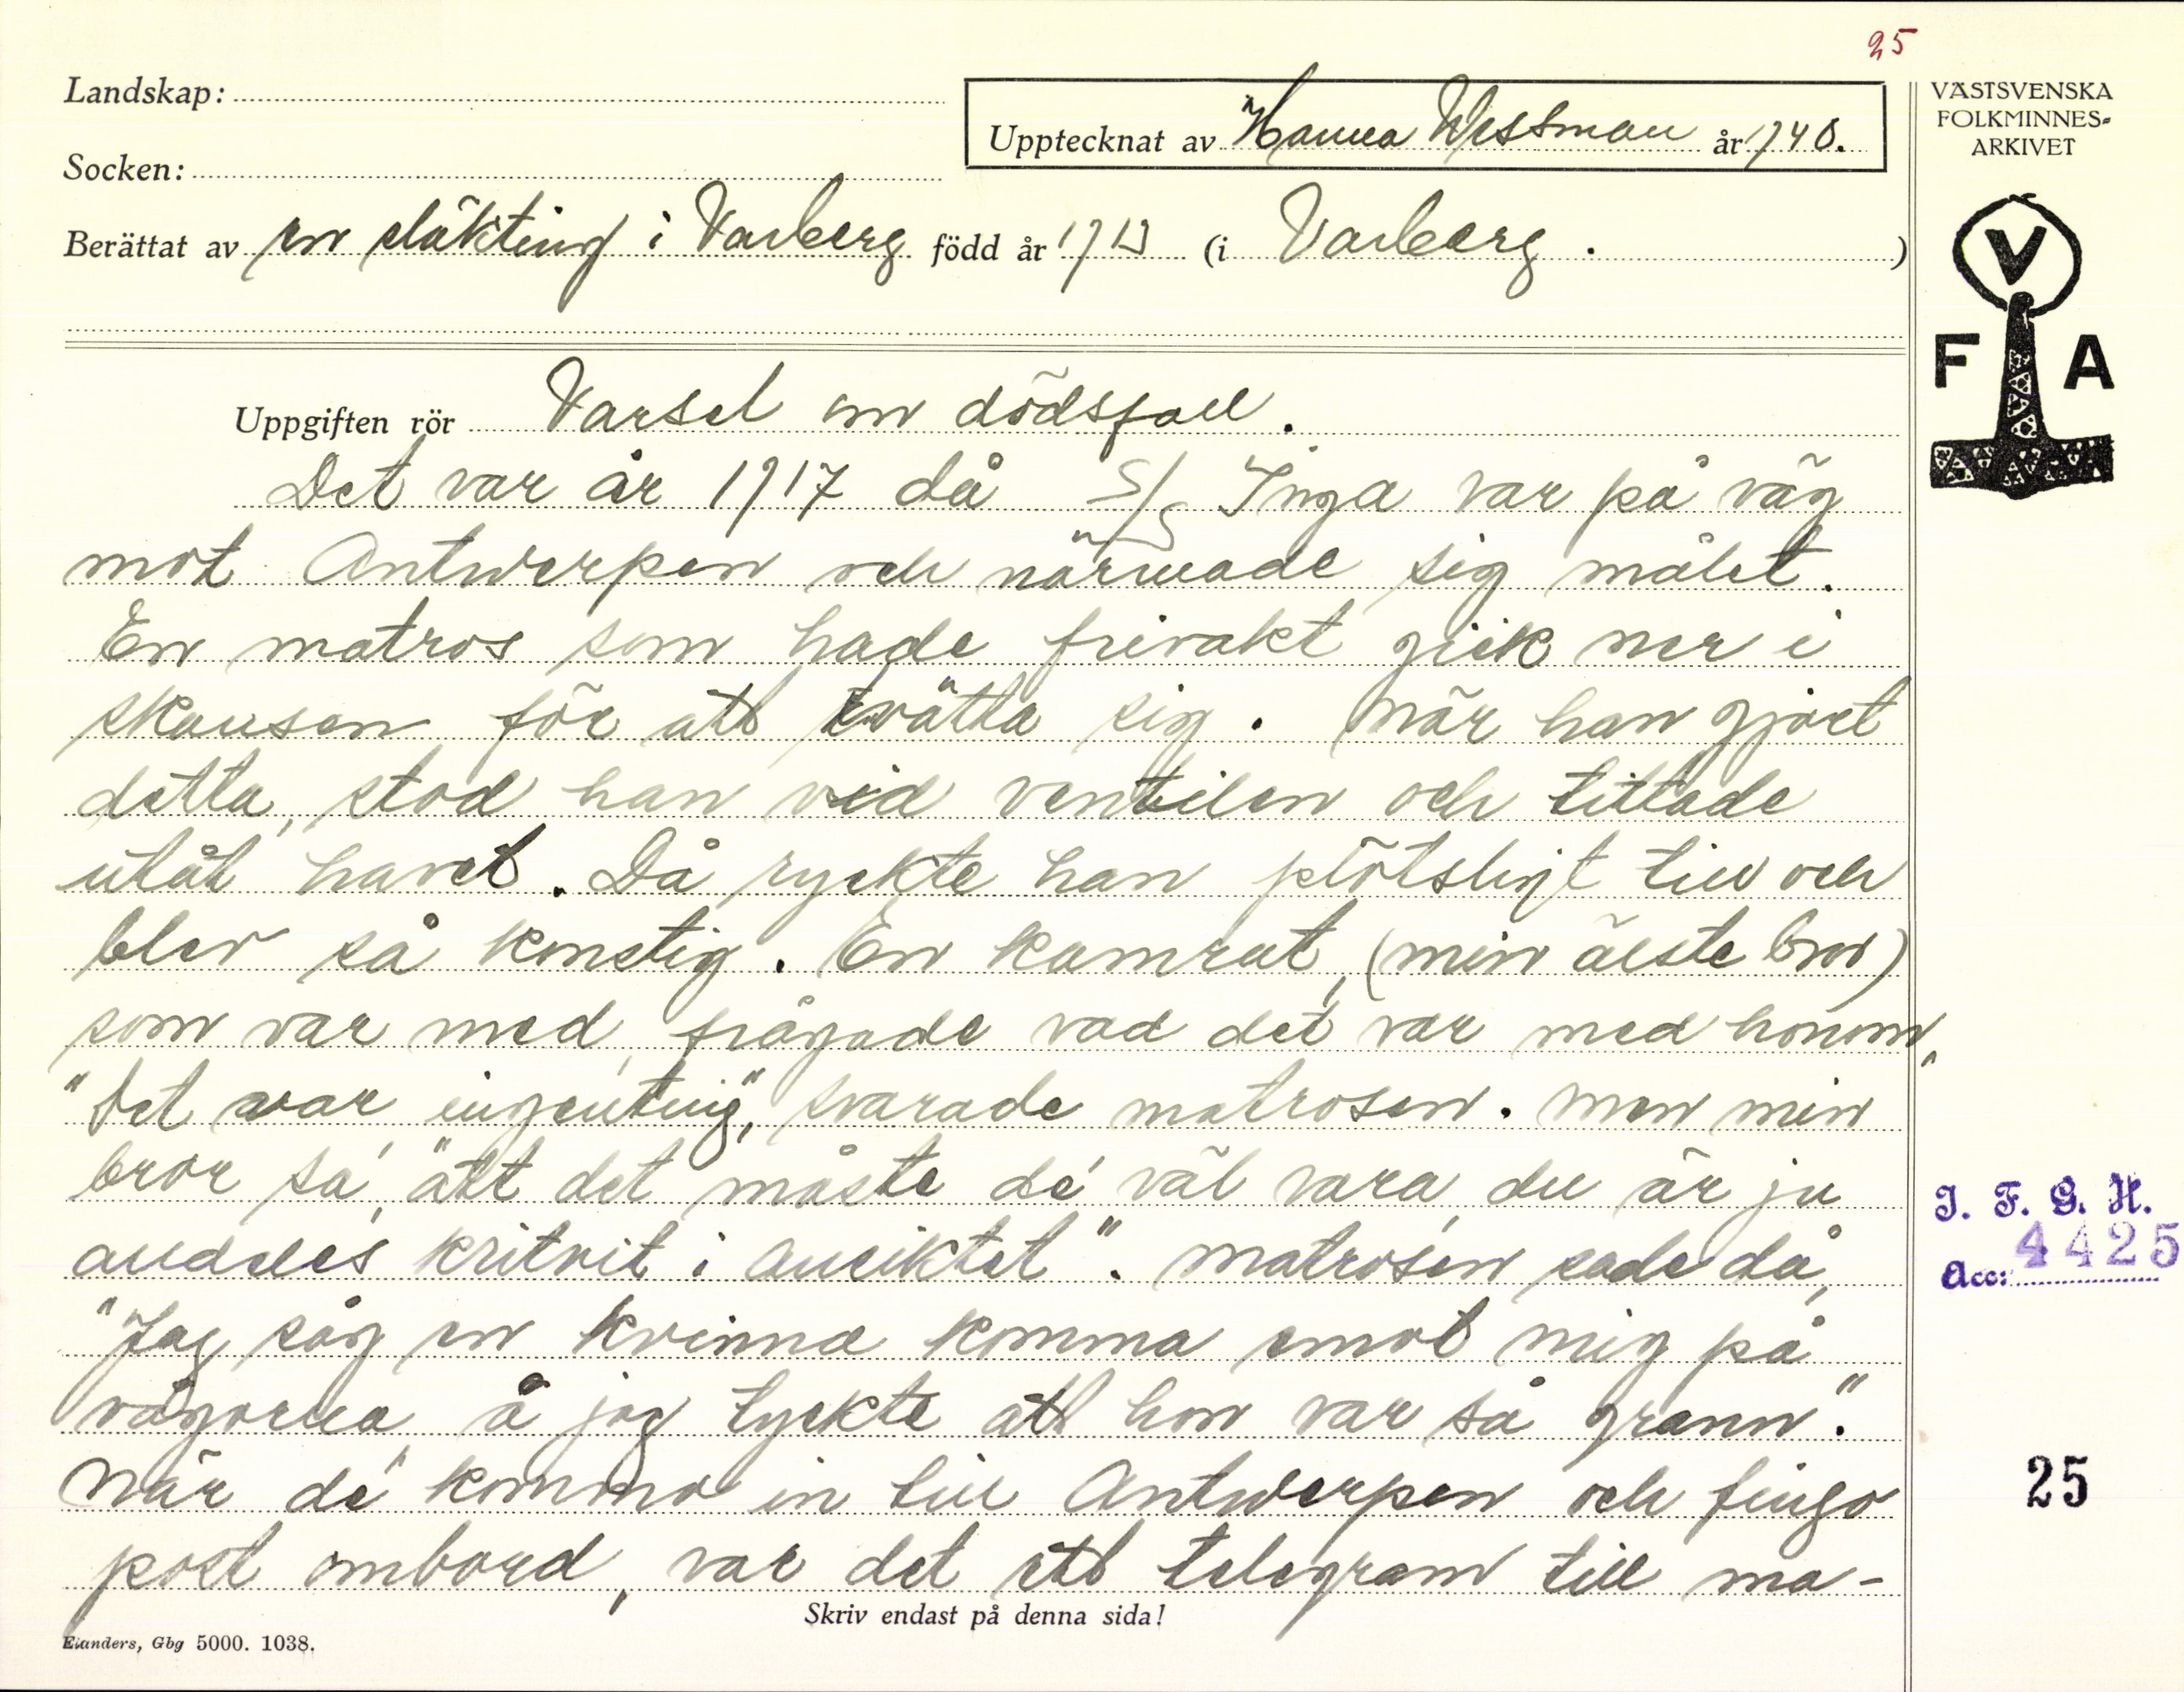 25
Landskap:
Upptecknat av Hanna Wessman år 1940.
Socken:
Berättat av en släkting i Varberg född år 1913 (i Varberg.)
VÄSTSVENSKA
FOLKMINNES-
ARKIVET
V
F A
Uppgiften rör Varsel om dödsfall.
Det var år 1917 då S/S Inga var på väg
mot Antwerpen och närmade sig målet.
En matros som hade frivakt gick ner i
skansen för att tvätta sig. När han gjort
detta, stod han vid ventilen och tittade
utåt havet. Då ryckte han plötsligt till och
blev så konstig. En kamrat, (min älste bror)
som var med, frågade vad det var med honom,
"Det var ingenting", svarade matrosen. Men min
bror sa, "att det måste dé väl vara, du är ju
alldeles kritvit i ansiktet". Matrosen sade då,
"Jag såg en kvinna komma emot mig på
vågorna, å jag tyckte att hon var så grann".
När dé kommo in till Antwerpen och fingo
post ombord, var det ett telegram till ma-
Skriv endast på denna sida!
Elanders, Gbg 5000. 1038.
I. F. G. H.
Acc: 4425
25